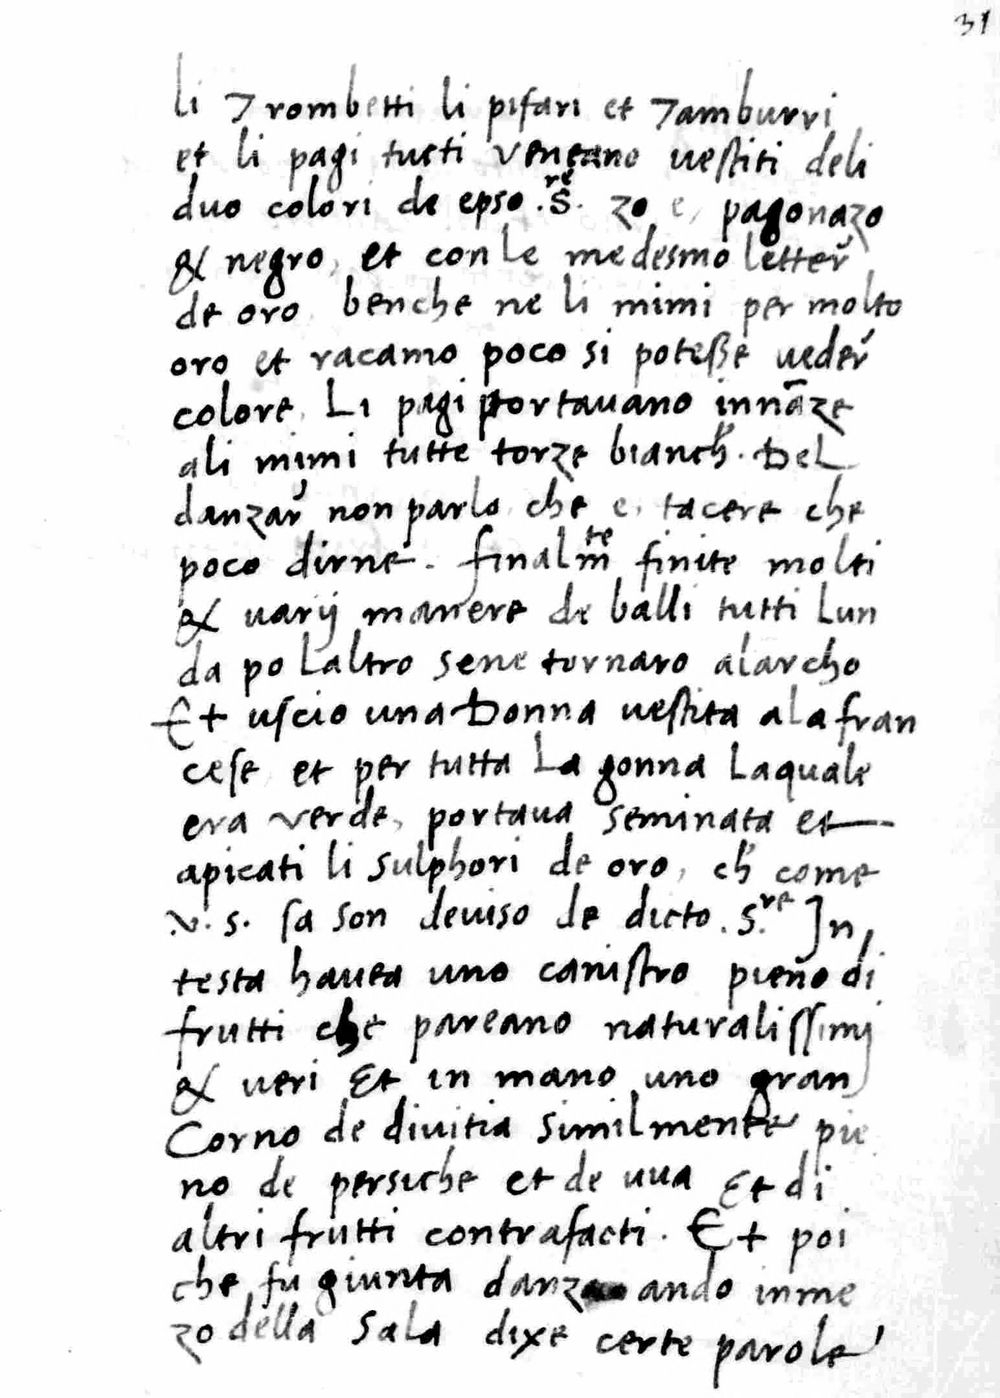 31
li Trombetti li pifari et Tamburri
et li pagi tucti veneano uestiti deli
duo colori de epso .S.re zo e, pagonazo
& negro, et con le medesmo letter̃
de oro, benche ne li mimi per molto
oro et racamo poco si potesse ueder̃
colore. Li pagi portauano innāze
ali mimi tutte torze bianch̃. Del
danzar̃ non parlo, che e, tacere che
poco dirne. finalmte finite molti
& varij manere de balli tutti Lun
da po Laltro sene tornaro alarcho
Et uscio una Donna uestita ala fran
cese, et per tutta La gonna Laquale
era verde, portaua seminata et
apicati li sulphori de oro, ch̃ come
.v. s. sa son deuiso de dicto .S.re In
testa hauea uno canistro pieno di
frutti che pareano naturalissimj
& ueri Et in mano uno gran
Corno de diuitia similmente pie
no de persiche et de uua Et di
altri frutti contrafacti. Et poi
che fu giunta danz ando inme
zo della sala dixe certe parole